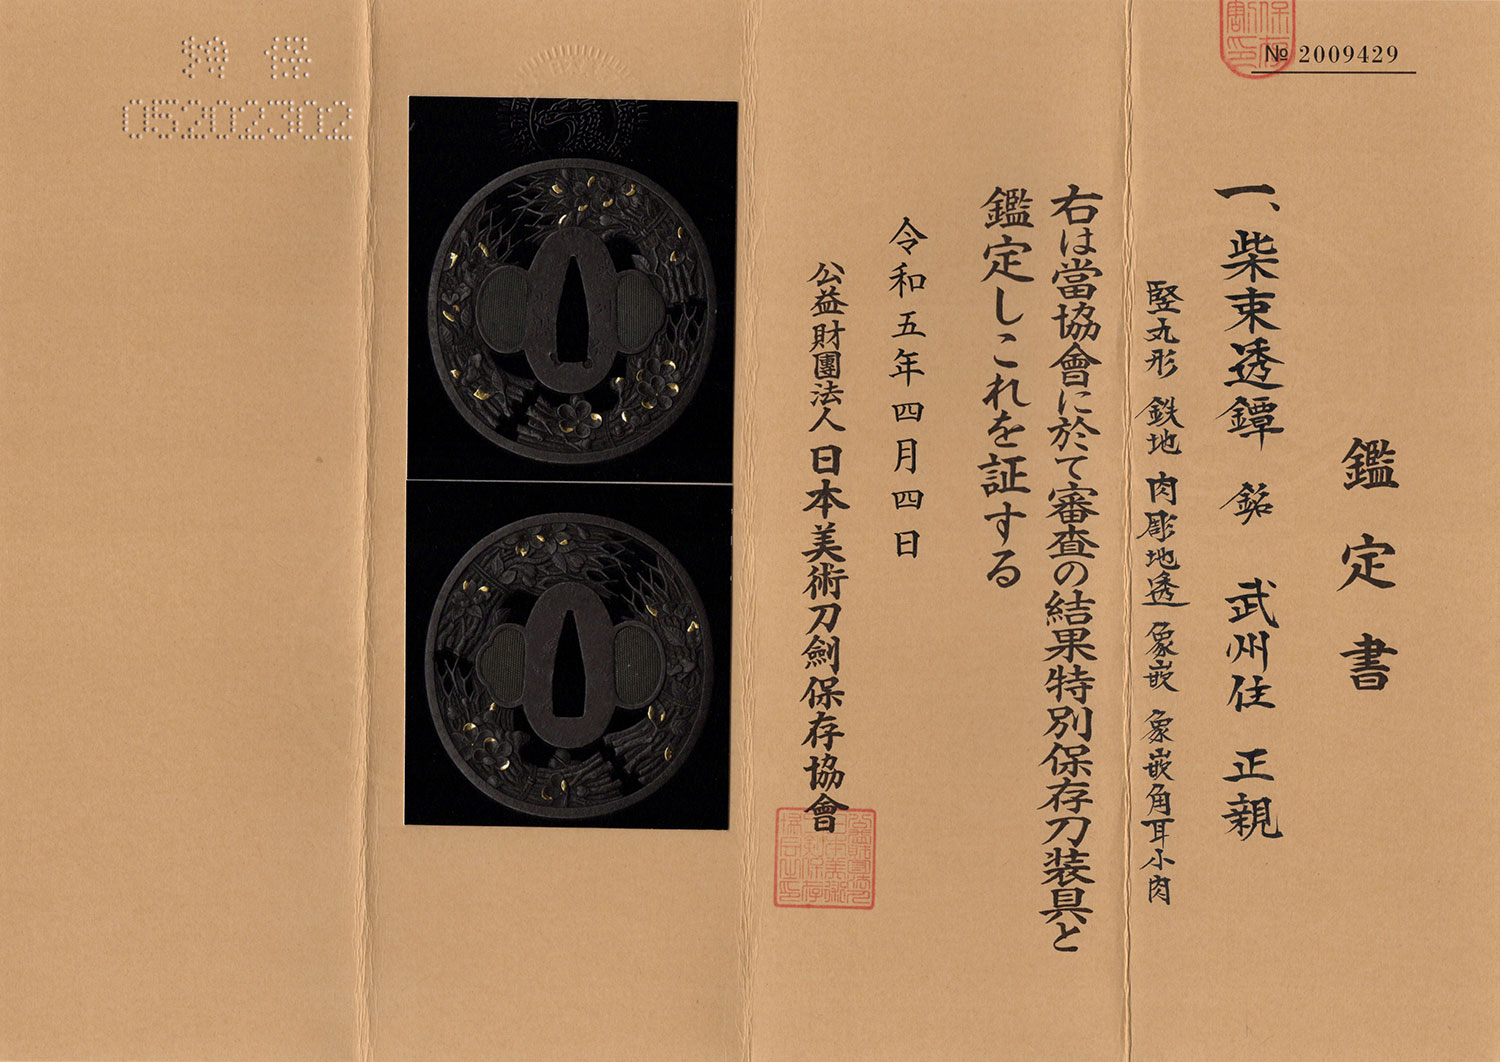 № 2009429
鑑定書
一、柴束透鐔 銘 武州住 正親
竪丸形 鉄地 肉彫地透 象嵌 象嵌角耳小肉
右は當協會に於て審査の結果特別保存刀装具と
鑑定しこれを証する
令和五年四月四日
公益財團法人 日本美術刀劍保存協會
特保
05202302